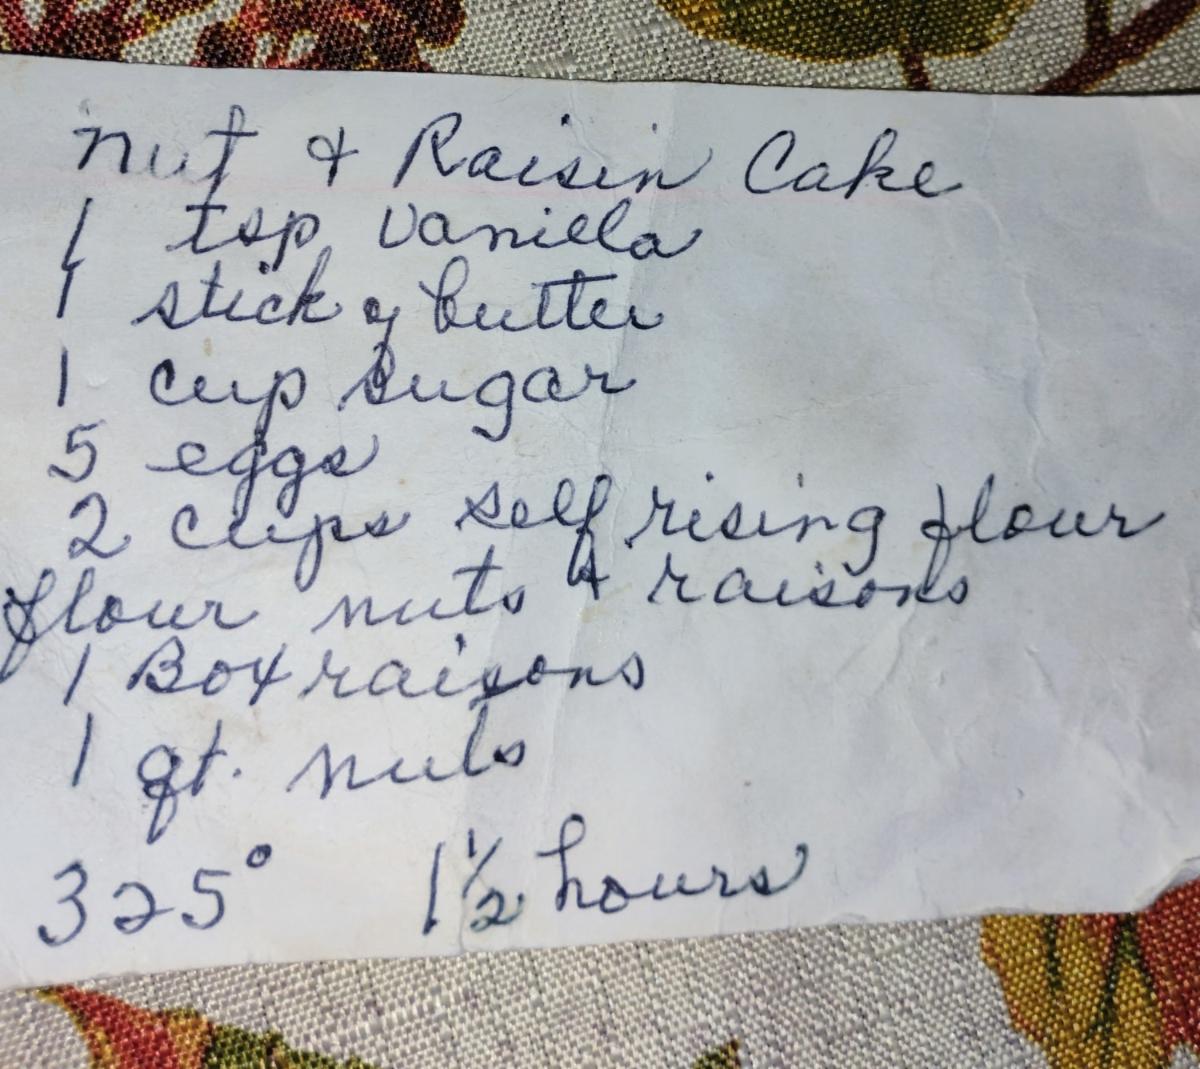 Nut & Raisin Cake
1 tsp vanilla
1 stick of butter
1 cup sugar
5 eggs
2 cups self rising flour
flour nuts & raisons
1 Box raisons
1 qt. nuts
325° 1 1/2 hours